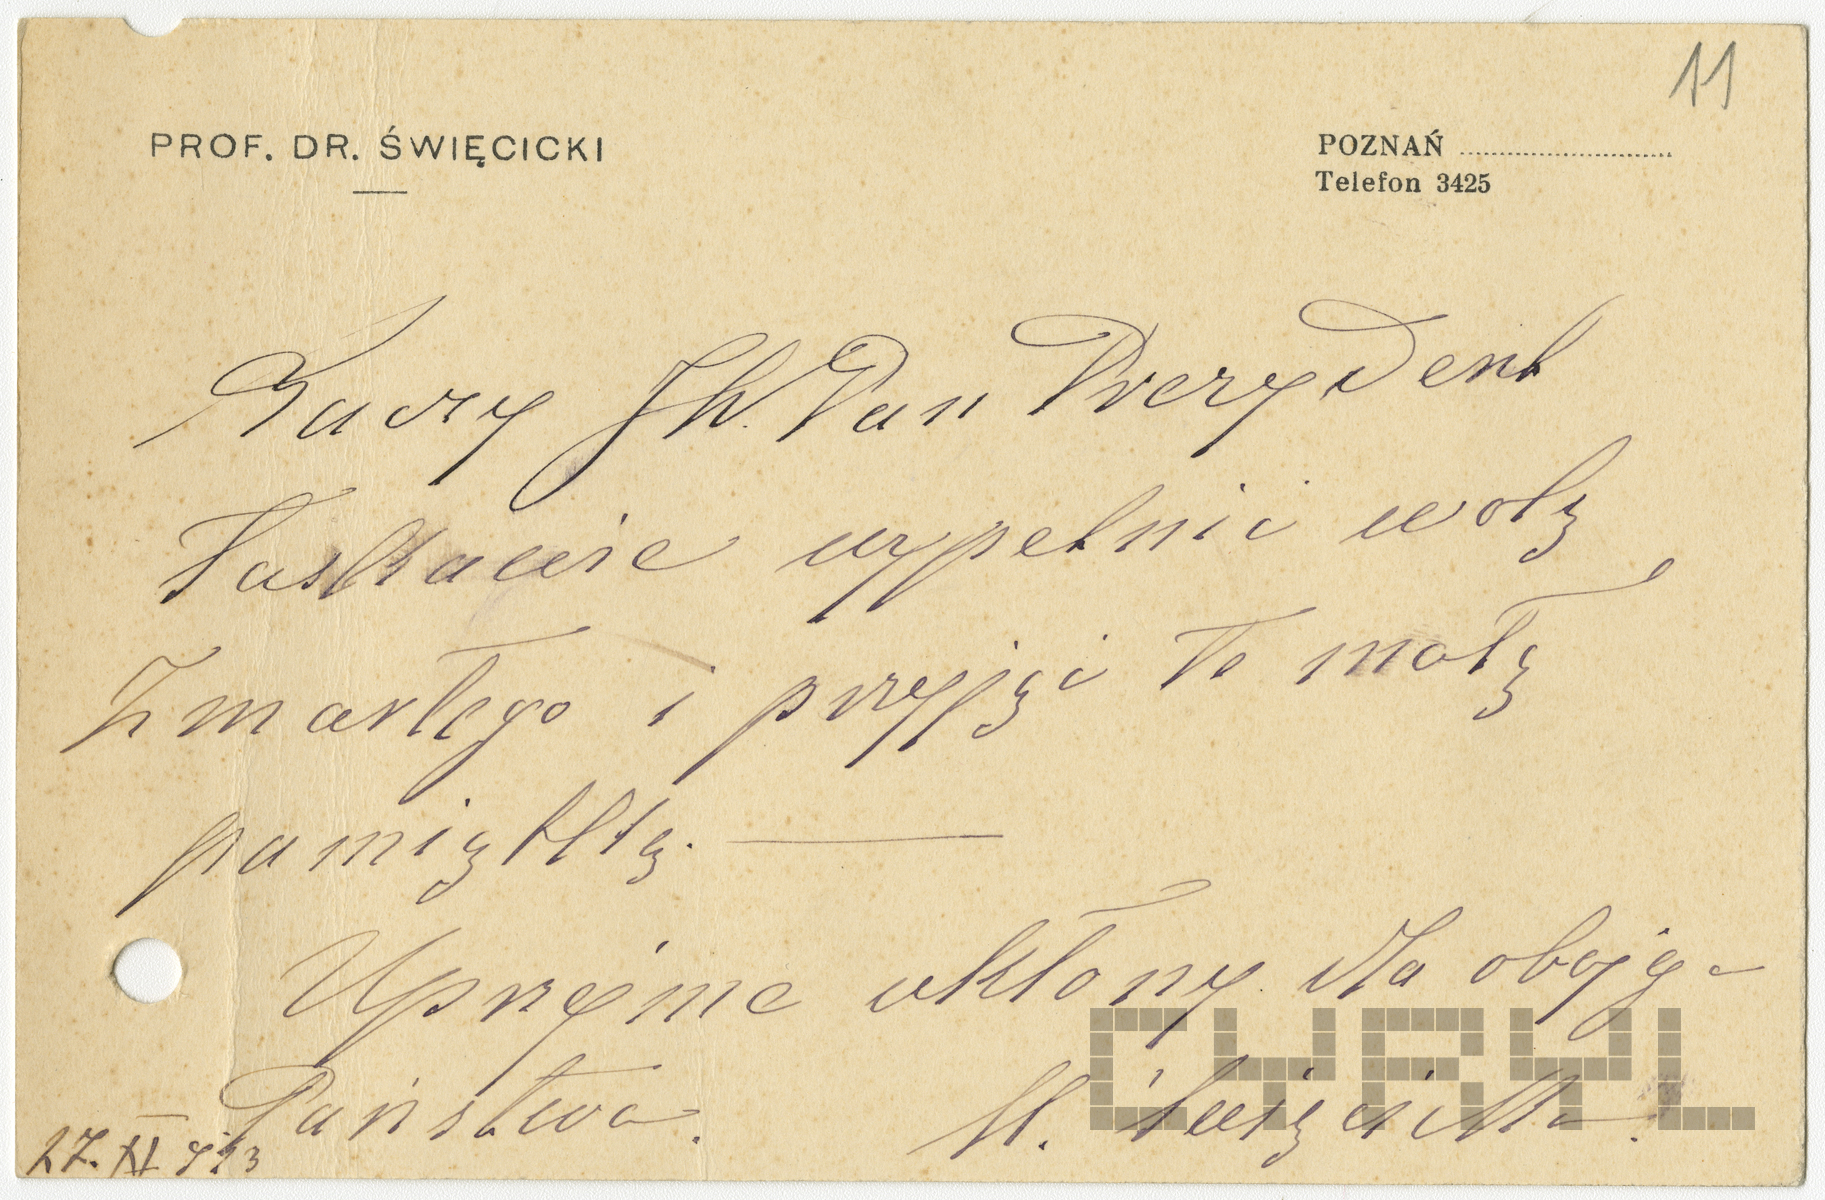 11
PROF. DR. ŚWIĘCICKI
POZNAŃ
Telefon 3425
Raczy JW. Pan Prezydent
łaskawie wypełnić wolę
Zmarłego i przyjąć tę małą
pamiątkę.
Uprzejme ukłony dla obojg-
Państwa.
H. Święcicki
27. XI 923
CYRYL